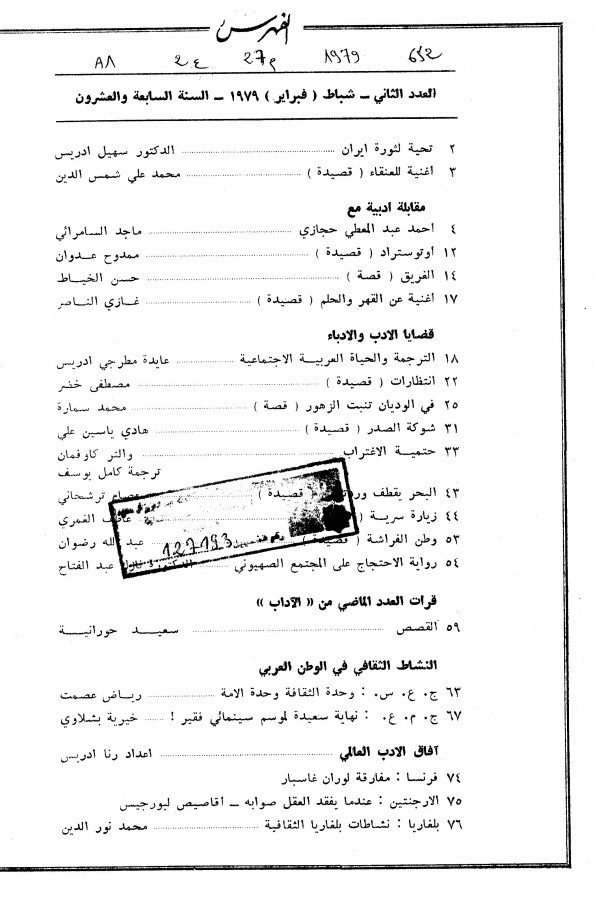 الفهرس
652 1979 م27 ع2 A8
العدد الثاني ــ شباط ( فبراير ) ١٩٧٩ ــ السنة السابعة والعشرون
٢ تحية لثورة ايران الدكتور سهيل ادريس
٣ اغنية للعنقاء ( قصيدة ) محمد علي شمس الدين
مقابلة ادبية مع
٤ احمد عبد المعطي حجازي ماجد السامرائي
١٢ اوتوستراد ( قصيدة ) ممدوح عدوان
١٤ الفريق ( قصة ) حسن الخياط
١٧ اغنية عن القهر والحلم ( قصيدة ) غازي الناصر
قضايا الادب والادباء
١٨ الترجمة والحياة العربية الاجتماعية عايدة مطرجي ادريس
٢٢ انتظارات ( قصيدة ) مصطفى خضر
٢٥ في الوديان تنبت الزهور ( قصة ) محمد سمارة
٣١ شوكة الصدر ( قصيدة ) هادي ياسين علي
٣٣ حتمية الاغتراب والتر كاوفمان
ترجمة كامل يوسف
٤٣ البحر يقطف قصيدة ) عصام ترشحاني
٤٤ زيارة سرية ( الغمري
٥٣ وطن الفراشة ( قصيدة ) الله رضوان
٥٤ رواية الاحتجاج على المجتمع الصهيوني الدكتور عبد الفتاح
127193
قرات العدد الماضي من « الآداب »
٥٩ القصص سعيد حورانية
النشاط الثقافي في الوطن العربي
٦٣ ج. ع. س. : وحدة الثقافة وحدة الامة رياض عصمت
٦٧ ج. م. ع. : نهاية سعيدة لموسم سينمائي فقير ! خيرية بشلاوي
آفاق الادب العالمي اعداد رنا ادريس
٧٤ فرنسا : مفارقة لوران غاسبار
٧٥ الارجنتين : عندما يفقد العقل صوابه ــ اقاصيص لبورجيس
٧٦ بلغاريا : نشاطات بلغاريا الثقافية محمد نور الدين